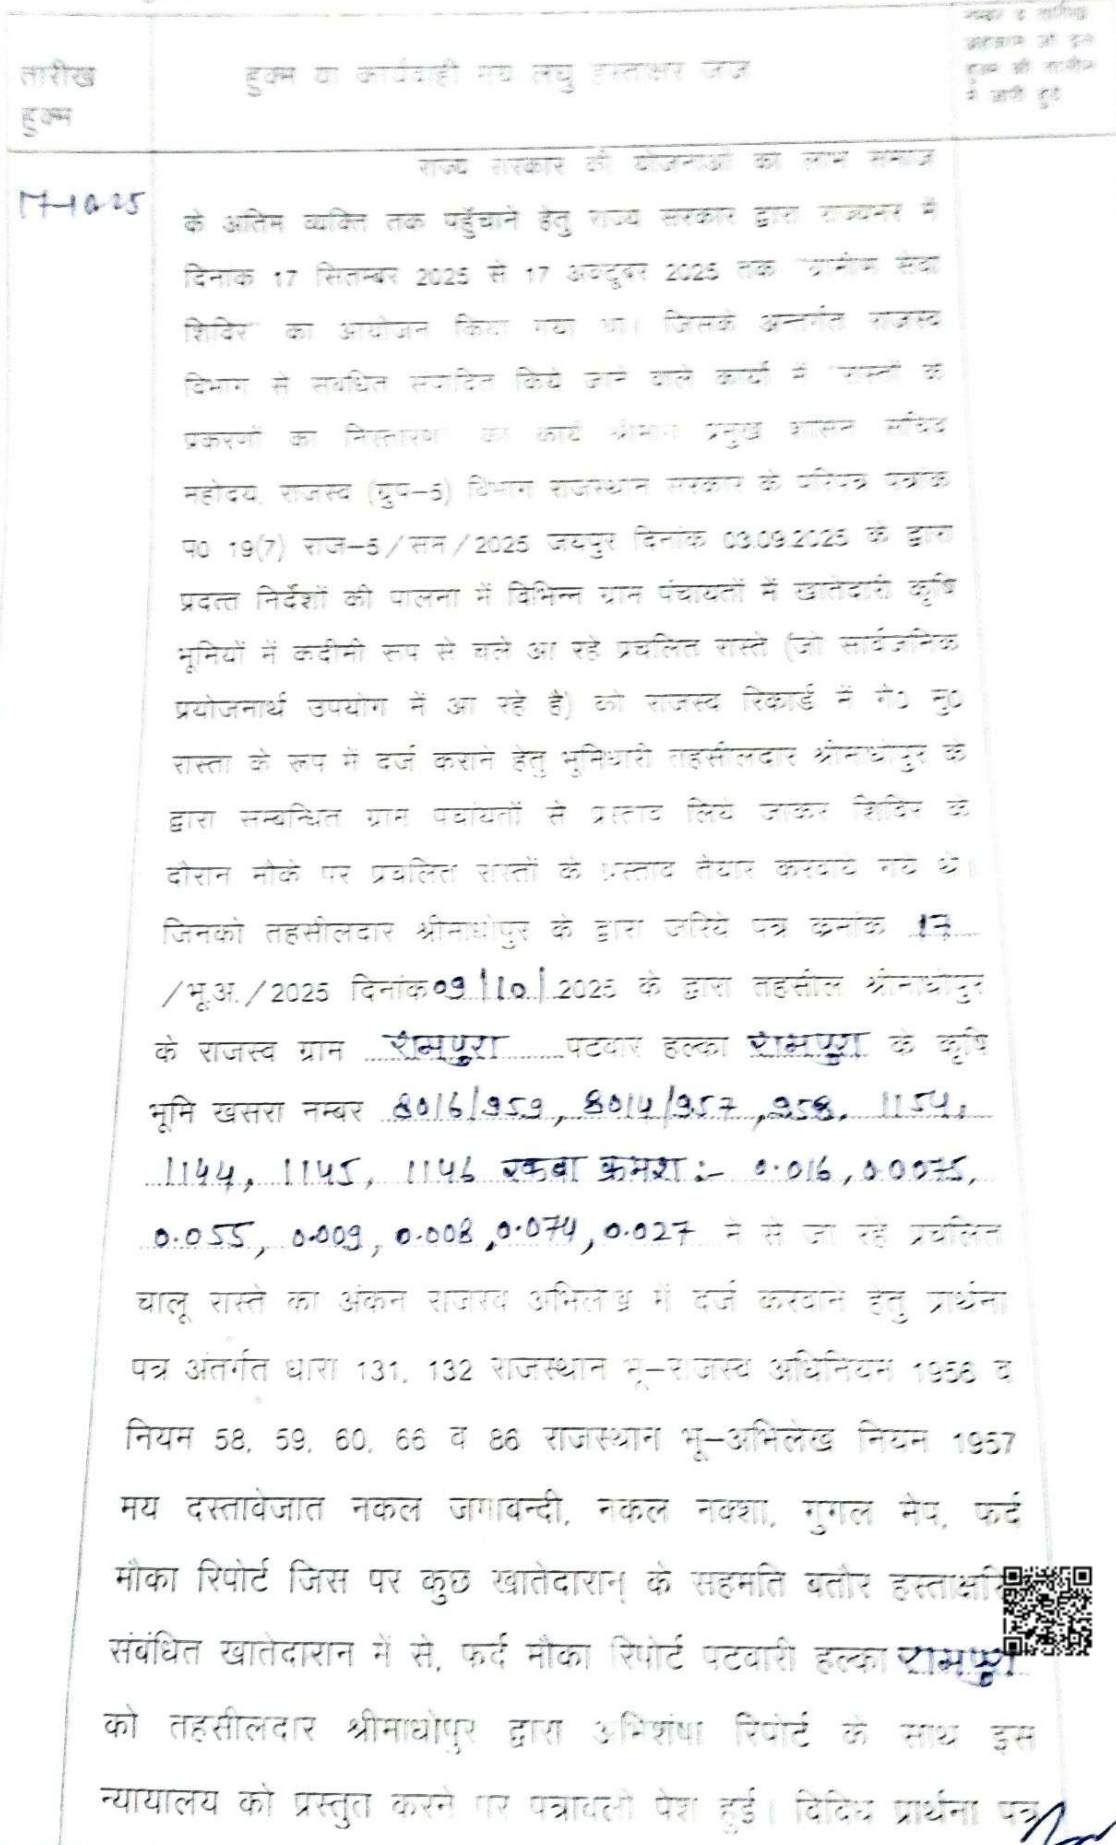 तारीख
हुक्म
हुक्म या कार्यवाही मय लघु हस्ताक्षर जज
नम्बर व तारीख
अहकाम जो इस
हुक्म की तामील
में जारी हुए
17-10-25
राज्य सरकार की योजनाओं का लाभ समाज
के अंतिम व्यक्ति तक पहुँचाने हेतु राज्य सरकार द्वारा राज्यभर में
दिनांक 17 सितम्बर 2025 से 17 अक्टूबर 2025 तक "ग्रामीण सेवा
शिविर" का आयोजन किया गया था। जिसके अन्तर्गत राजस्व
विभाग से संबंधित संपादित किये जाने वाले कार्यों में "रास्तों के
प्रकरणों का निस्तारण" का कार्य श्रीमान प्रमुख शासन सचिव
महोदय, राजस्व (ग्रुप-6) विभाग राजस्थान सरकार के परिपत्र पत्रांक
प0 19(7) राज-6/सन/2025 जयपुर दिनांक 03.09.2025 के द्वारा
प्रदत्त निर्देशों की पालना में विभिन्न ग्राम पंचायतों में खातेदारी कृषि
भूमियों में कदीमी रूप से चले आ रहे प्रचलित रास्ते (जो सार्वजनिक
प्रयोजनार्थ उपयोग में आ रहे है) को राजस्व रिकार्ड में गै0 मु0
रास्ता के रूप में दर्ज कराने हेतु भूमिधारी तहसीलदार श्रीमाधोपुर के
द्वारा सम्बन्धित ग्राम पंचांयतों से प्रस्ताव लिये जाकर शिविर के
दौरान मौके पर प्रचलित रास्तों के प्रस्ताव तैयार करवाये गये थे।
जिनको तहसीलदार श्रीमाधोपुर के द्वारा जरिये पत्र क्रमांक 17
/भू.अ./2025 दिनांक 09/10/2025 के द्वारा तहसील श्रीमाधोपुर
के राजस्व ग्राम रामपुरा पटवार हल्का रामपुरा के कृषि
भूमि खसरा नम्बर 8016/959, 8014/957, 958, 1154,
1144, 1145, 1146 रकबा क्रमश:- 0.016, 0.0075,
0.055, 0.009, 0.008, 0.074, 0.027 मे से जा रहे प्रचलित
चालू रास्ते का अंकन राजस्व अभिलेख में दर्ज करवाने हेतु प्रार्थना
पत्र अंतर्गत धारा 131, 132 राजस्थान भू-राजस्व अधिनियम 1956 व
नियम 58, 59, 60, 66 व 86 राजस्थान भू-अभिलेख नियम 1957
मय दस्तावेजात नकल जमाबन्दी, नकल नक्शा, गुगल मेप, फर्द
मौका रिपोर्ट जिस पर कुछ खातेदारान् के सहमति बतौर
संबंधित खातेदारान में से, फर्द मौका रिपोर्ट पटवारी हल्का रामपुरा
को तहसीलदार श्रीमाधोपुर द्वारा अभिशंषा रिपोर्ट के साथ इस
न्यायालय को प्रस्तुत करने पर पत्रावली पेश हुई। विविध प्रार्थना पत्र